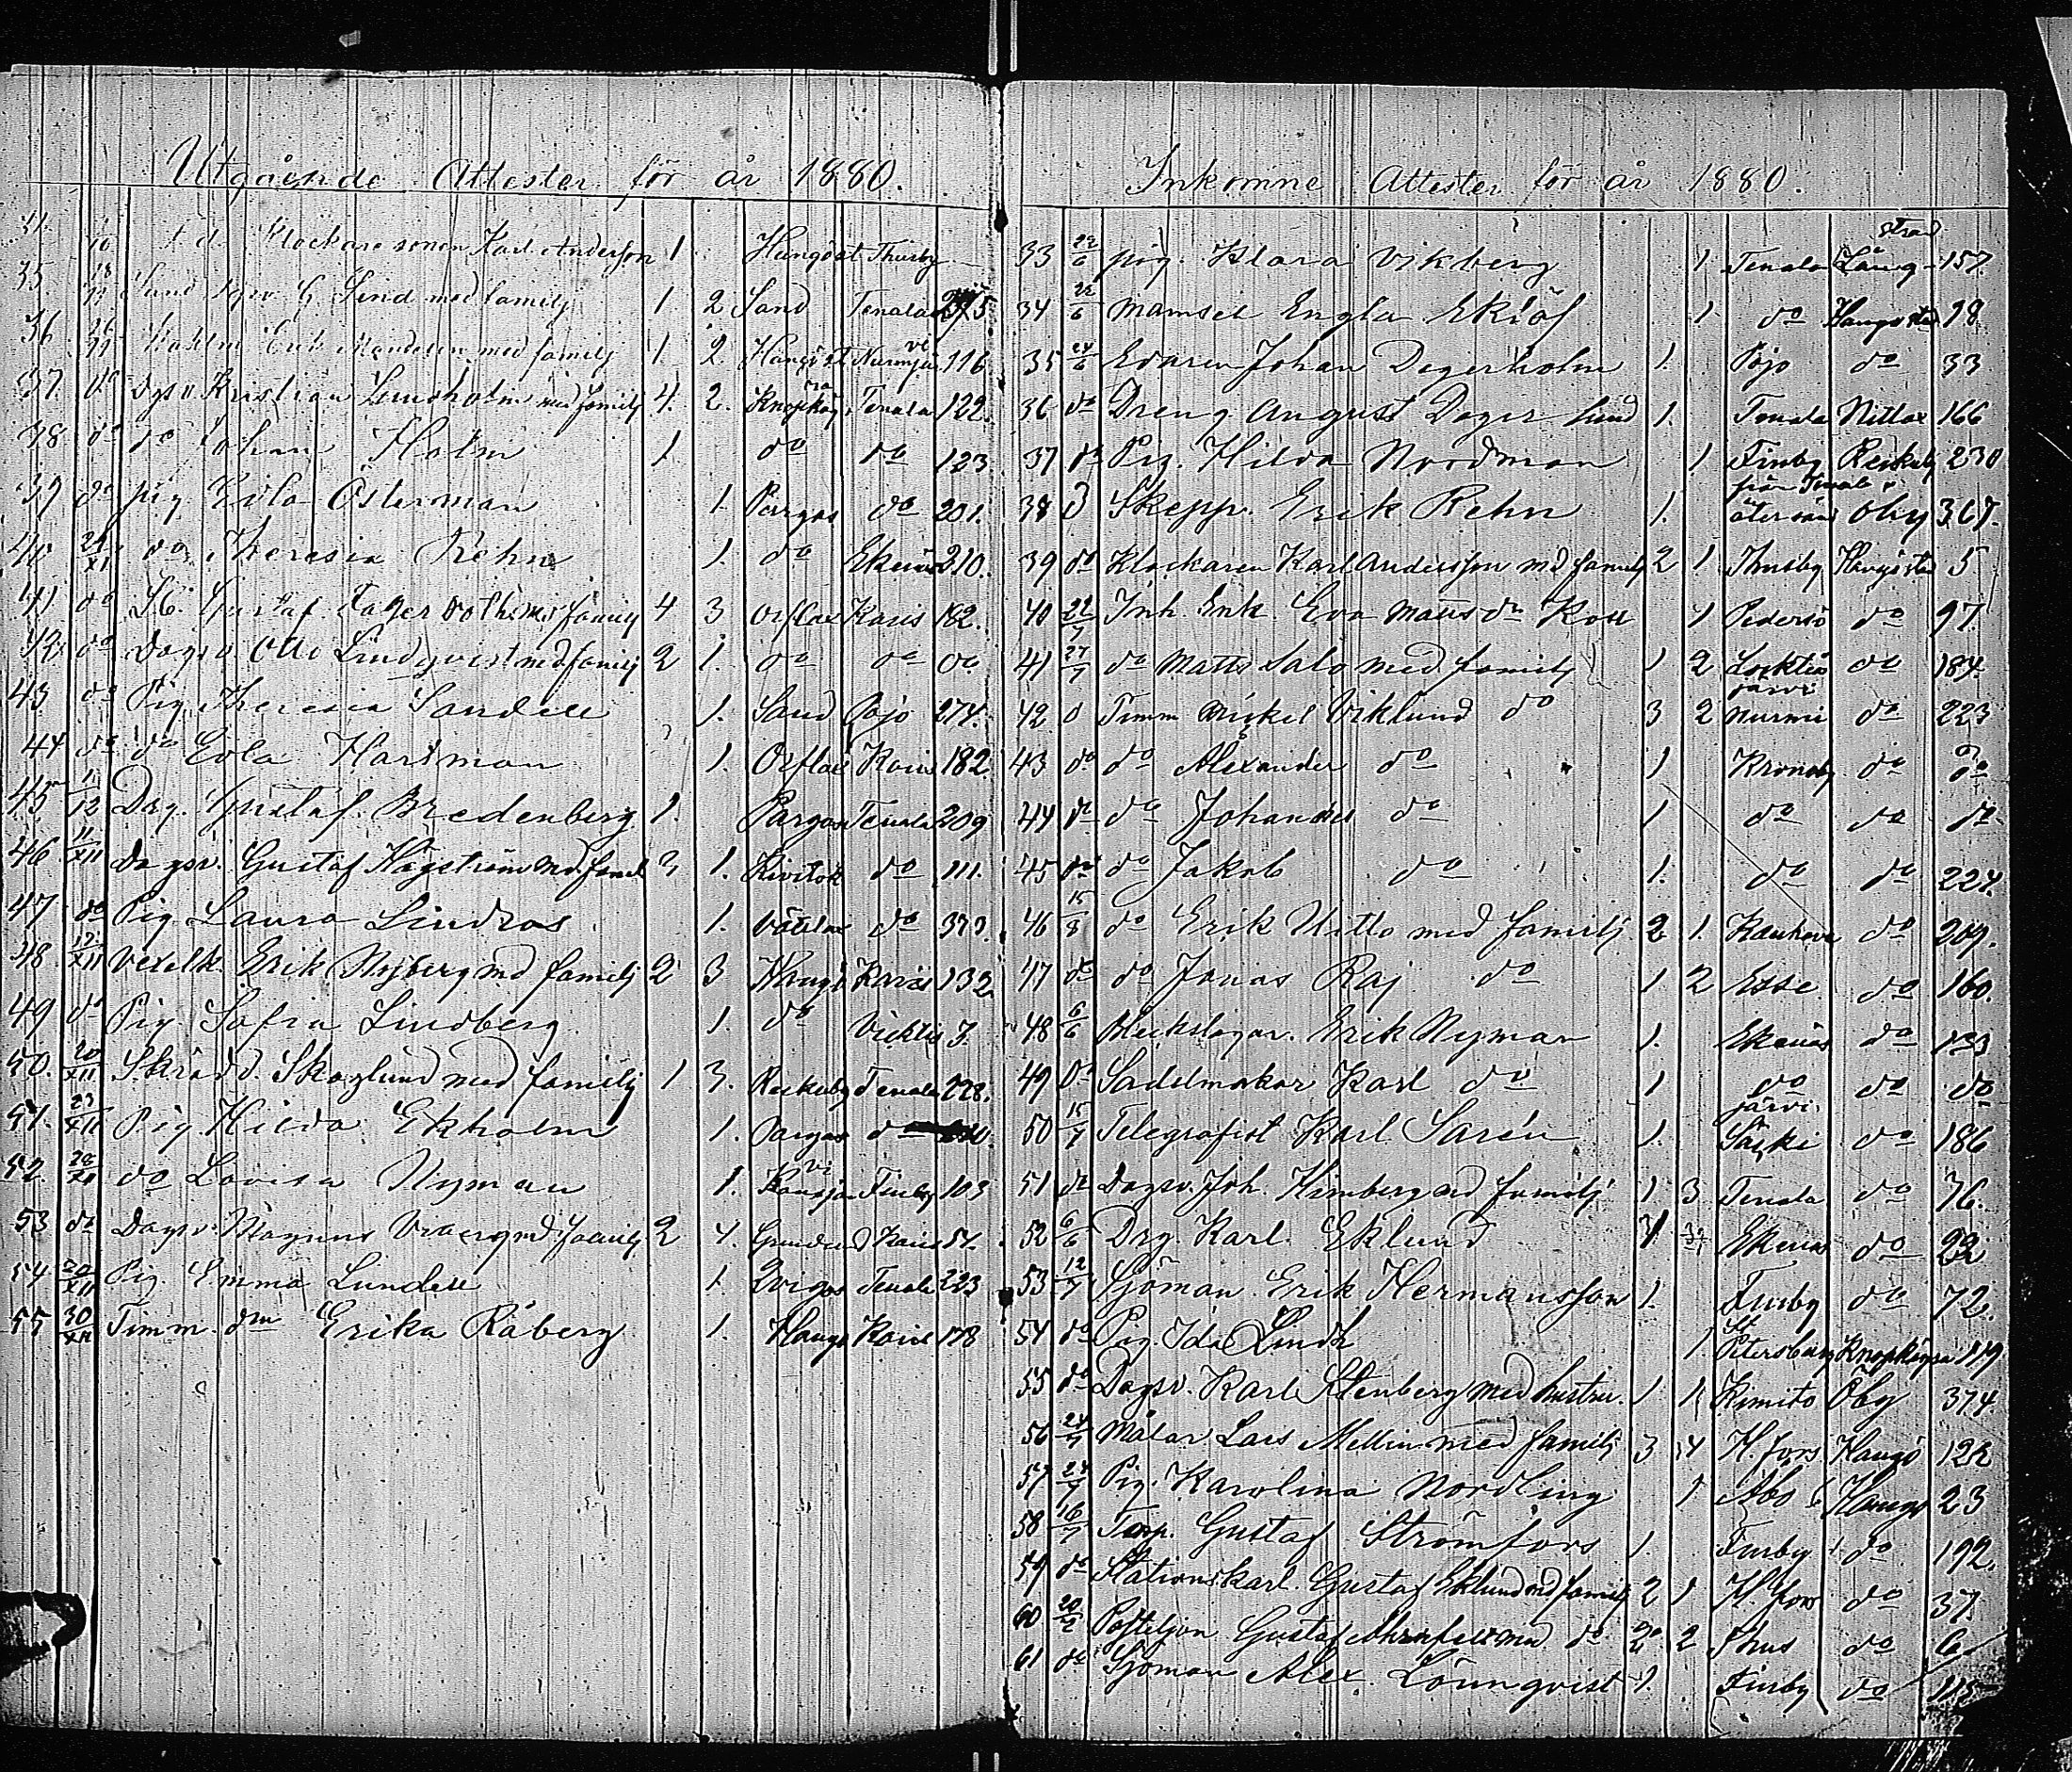 Utgående Attester för år 1880.
Klockare sonen Karl Andersson 1 Hangöst Thusby
35 Lind med familj 1 2 Sand Tenala
36 Erik med familj 1 2 Hangöst Nurmijärvi 116
37. do Dagsv Kristian Lindholm med familj 4. 2. Knopkägra Tenala 122.
38 do do Johan Holm 1 do do 123
39 do pig Edla Österman 1. Pargas do 201.
40 do Theresia Rehn 1. do Ekenäs 210.
41 do Gustaf med familj 4 3 Orflax Karis 182.
42 do Dagsv. Otto Lindqvist med familj 2 1. do do do
43 do Pig Theresia Sandell 1. Sand Pojo 274.
44 do do Edla Hartman 1. Orflax Karis 182
45 1/12 Drg. Gustaf Bredenberg 1. Pargas Tenala 209
46 11/XII Dagsv. Gustaf Hägström med famil 3 1. do 111.
47 do Pig Laura Lindros 1. do 373.
48 12/XII Erik Nyberg md familj 2 3 Hangö Karis 132
49 do Pig. Sofia Lindberg 1 do Vichtis 7.
50. 20/XII Skrädd. Skoglund med familj 1 3. Reckuby Tenala 228.
51. 23/XII Pig Hilda Ekholm 1. Pargas do
52. do Lovisa Nyman 1. Finby 103
53 do Dagsv. Magnus md familj 2 4. Karis 51.
54 Pig Emma Lundell 1. Tenala 223
55 30/XII Timm. dm Erika Råberg 1. Hangö Karis 178
Inkomne Attester för år 1880.
33 22/6 pig. Klara Vikberg 1 Tenala Långstrand 157
34 22/6 Mamsel Engla Eklöf 1 do Hangöstad 18
35 24/6 Johan Degerholm 1. Pojo do 33
36 do Dreng August Dagerlund 1. Tenala Nitlax 166
37 do Pig. Hilda Nordman 1 Finby Reckuby 230
38 d Skepp. Erik Rehn 1. från Tenala återsänd Öby 367.
39 do Klockaren Karl Andersson md familj 2 1 Thusby Hangöstad 5
40 Inh. Enk. Eva Matts dr Koll 1 Pedersö do 97
41 27/7 do Matts Salo med familj 1 2 do 184.
42 d Timm Mickel Viklund do 3 2 Nurmijärvi do 223
43 do do Alexander do 1 Kronoby do do
44 do do Johannes do 1 do do do
45 do do Jakob do 1. do do 224.
46 15/8 do Erik Hitto med familj. 2 1. Kauhava do 209.
47 do do Jonas Raj do 1 2 Esse do 160.
48 6/6 Bleckslagar. Erik Nyman 1. Ekenäs do 133
49 do Sadelmakar Karl do 1 do do do
50 15/7 Telegrafist Karl Sarén 1. Säkijärvi do 186
51 do Dagsv. Joh. Himberg md familj 1 3 Tenala do 76.
52 6/6 Drg. Karl Eklund Ekenäs do 22
53 12/7 Sjöman Erik Hermansson 1. Finby do 72.
54 do Pig. Ida Lindh 1 St Petersburg Knopkägra 119
55 do Dagsv. Karl Stenberg med hustru. 1 1 Kimito Öby 374.
56 24/7 Målar Lars Mellin med familj 3 4 H.fors Hangö 122
57 24/7 Pig. Karolina Nordling 1 Åbo Hangö 23
58 16/7 Torp. Gustaf Strömfors 1. Finby do 192.
59 do Stationskarl. Gustaf Eklund md familj 2 1 H.fors do 37.
60 Postiljon Gustaf med do 2 2 Thus do 6
61 do Sjöman Alex. Lönnqvist 1. Finby do 115